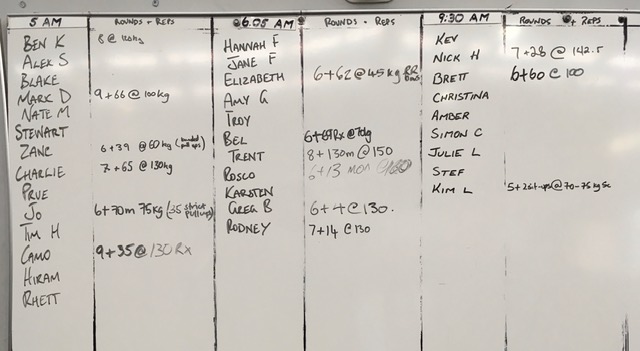 5 AM ROUNDS + REPS
BEN K 8 @ 110kg
ALEX S
BLAKE
MARK D 9+66 @ 100kg
NATE M
STEWART
ZANE 6+39 @ 60kg (banded pull ups)
CHARLIE 7+65 @ 130kg
PRUE
JO 6+70m 75kg (35 strict pullups)
TIM H
CAMO 9+35 @ 130 Rx
HIRAM
RHETT
@6.05 AM ROUNDS + REPS
HANNAH F
JANE F
ELIZABETH 6+62 @ 45kg RR
AMY G
TROY
BEL 6+69 Rx @ 70kg
TRENT 8+130m @ 150
ROSCO 6+13
KARSTEN
GREG B 6+4 @ 130.
RODNEY 7+14 @ 130
9:30 AM ROUNDS + REPS
KEV
NICK H 7+28 @ 142.5
BRETT 6+60 @ 100
CHRISTINA
AMBER
SIMON C
JULIE L
STEF
KIM L @ 70-75kg